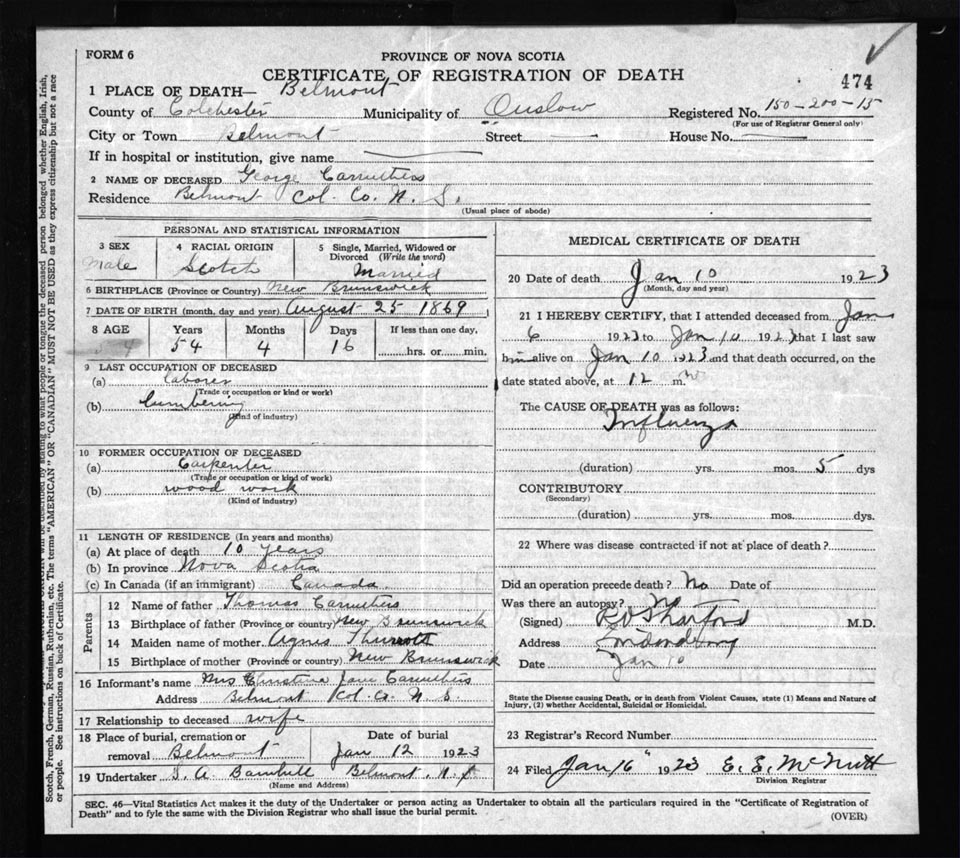 FORM 6
PROVINCE OF NOVA SCOTIA
CERTIFICATE OF REGISTRATION OF DEATH
474
1 PLACE OF DEATH— Belmont
County of Colchester Municipality of Onslow Registered No. 150-200-15
(For use of Registrar General only)
City or Town Belmont Street — House No. —
If in hospital or institution, give name —
2 NAME OF DECEASED George Carruthers
Residence Belmont Col. Co. N. S.
(Usual place of abode)
PERSONAL AND STATISTICAL INFORMATION
3 SEX 4 RACIAL ORIGIN 5 Single, Married, Widowed or
Divorced (Write the word)
Male Scotch Married
6 BIRTHPLACE (Province or Country) New Brunswick
7 DATE OF BIRTH (month, day and year) August 25 1869
8 AGE Years Months Days If less than one day,
54 54 4 16 hrs. or min.
9 LAST OCCUPATION OF DECEASED
(a) laborer
(Trade or occupation or kind or work)
(b) lumbering
(Kind of industry)
10 FORMER OCCUPATION OF DECEASED
(a) Carpenter
(Trade or occupation or kind of work)
(b) wood work
(Kind of industry)
11 LENGTH OF RESIDENCE (In years and months)
(a) At place of death 10 years
(b) In province Nova Scotia
(c) In Canada (if an immigrant) Canada
Parents
12 Name of father Thomas Carruthers
13 Birthplace of father (Province or country) New Brunswick
14 Maiden name of mother Agnes
15 Birthplace of mother (Province or country) New Brunswick
16 Informant's name Mrs Christina Jane Carruthers
Address Belmont Col. Co. N. S.
17 Relationship to deceased wife
18 Place of burial, cremation or Date of burial
removal Belmont Jan 12 1923
19 Undertaker S. A. Barnhill Belmont. N. S
(Name and Address)
MEDICAL CERTIFICATE OF DEATH
20 Date of death Jan 10 1923
(Month, day and year)
21 I HEREBY CERTIFY, that I attended deceased from Jan
6 1923 to Jan 10 1923 that I last saw
him alive on Jan 10 1923 and that death occurred, on the
date stated above, at 12 m.
The CAUSE OF DEATH was as follows:
Influenza
(duration) yrs. mos. 5 dys
CONTRIBUTORY
(Secondary)
(duration) yrs. mos. dys.
22 Where was disease contracted if not at place of death?
Did an operation precede death? No Date of
Was there an autopsy? No
(Signed) M.D.
Address
Date Jan 10
State the Disease causing Death, or in death from Violent Causes, state (1) Means and Nature of
Injury, (2) whether Accidental, Suicidal or Homicidal.
23 Registrar's Record Number
24 Filed Jan 16 1923 E. E. McNutt
Division Registrar
SEC. 46—Vital Statistics Act makes it the duty of the Undertaker or person acting as Undertaker to obtain all the particulars required in the "Certificate of Registration of
Death" and to fyle the same with the Division Registrar who shall issue the burial permit.
(OVER)
will be described by stating to what people or tongue the deceased person belonged whether English, Irish,
Scotch, French, German, Russian, Ruthenian, etc. The terms "AMERICAN" OR "CANADIAN" MUST NOT BE USED as they express citizenship but not a race
or people. See instructions on back of Certificate.